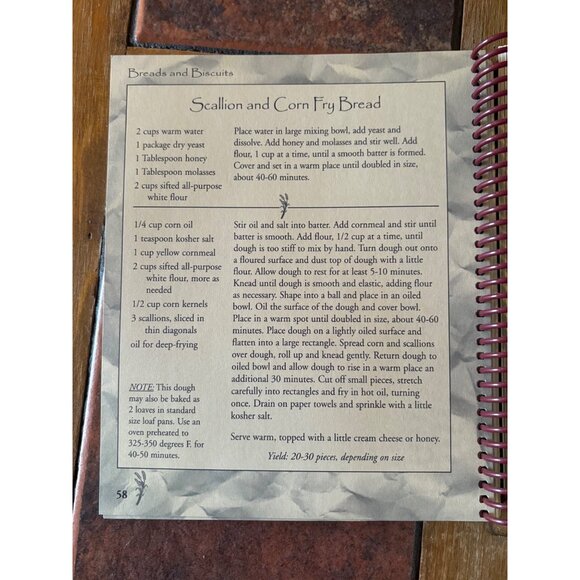 Breads and Biscuits
Scallion and Corn Fry Bread
2 cups warm water
1 package dry yeast
1 Tablespoon honey
1 Tablespoon molasses
2 cups sifted all-purpose
white flour
Place water in large mixing bowl, add yeast and
dissolve. Add honey and molasses and stir well. Add
flour, 1 cup at a time, until a smooth batter is formed.
Cover and set in a warm place until doubled in size,
about 40-60 minutes.
1/4 cup corn oil
1 teaspoon kosher salt
1 cup yellow cornmeal
2 cups sifted all-purpose
white flour, more as
needed
1/2 cup corn kernels
3 scallions, sliced in
thin diagonals
oil for deep-frying
NOTE: This dough
may also be baked as
2 loaves in standard
size loaf pans. Use an
oven preheated to
325-350 degrees F. for
40-50 minutes.
Stir oil and salt into batter. Add cornmeal and stir until
batter is smooth. Add flour, 1/2 cup at a time, until
dough is too stiff to mix by hand. Turn dough out onto
a floured surface and dust top of dough with a little
flour. Allow dough to rest for at least 5-10 minutes.
Knead until dough is smooth and elastic, adding flour
as necessary. Shape into a ball and place in an oiled
bowl. Oil the surface of the dough and cover bowl.
Place in a warm spot until doubled in size, about 40-60
minutes. Place dough on a lightly oiled surface and
flatten into a large rectangle. Spread corn and scallions
over dough, roll up and knead gently. Return dough to
oiled bowl and allow dough to rise in a warm place an
additional 30 minutes. Cut off small pieces, stretch
carefully into rectangles and fry in hot oil, turning
once. Drain on paper towels and sprinkle with a little
kosher salt.
Serve warm, topped with a little cream cheese or honey.
Yield: 20-30 pieces, depending on size
58